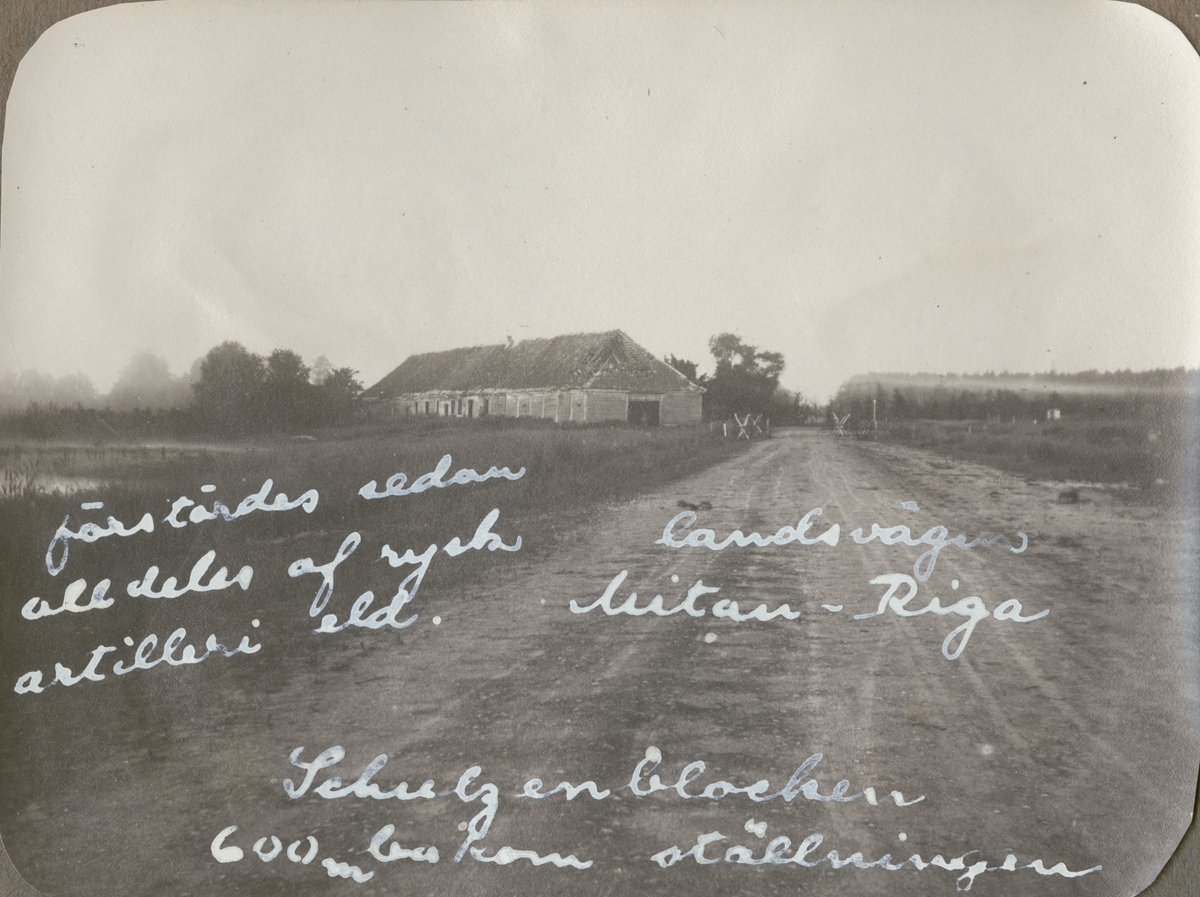 förstördes sedan
alldeles af rysk
artilleri eld.
landsvägen
Mitan - Riga
Schulzenblocken
600 m bakom ställningen